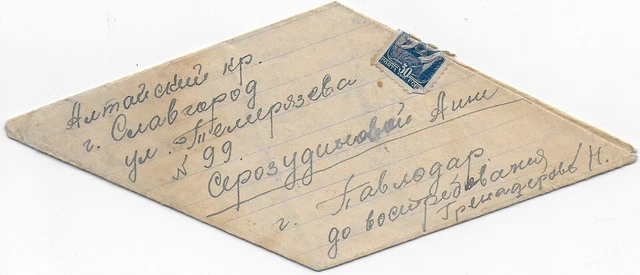 Алтайский кр.
г. Славгород
ул. Темирязева
N 99.
Серозудиновой Ани
г. Павлодар.
до востребования
Гренадеровъ Н.
30